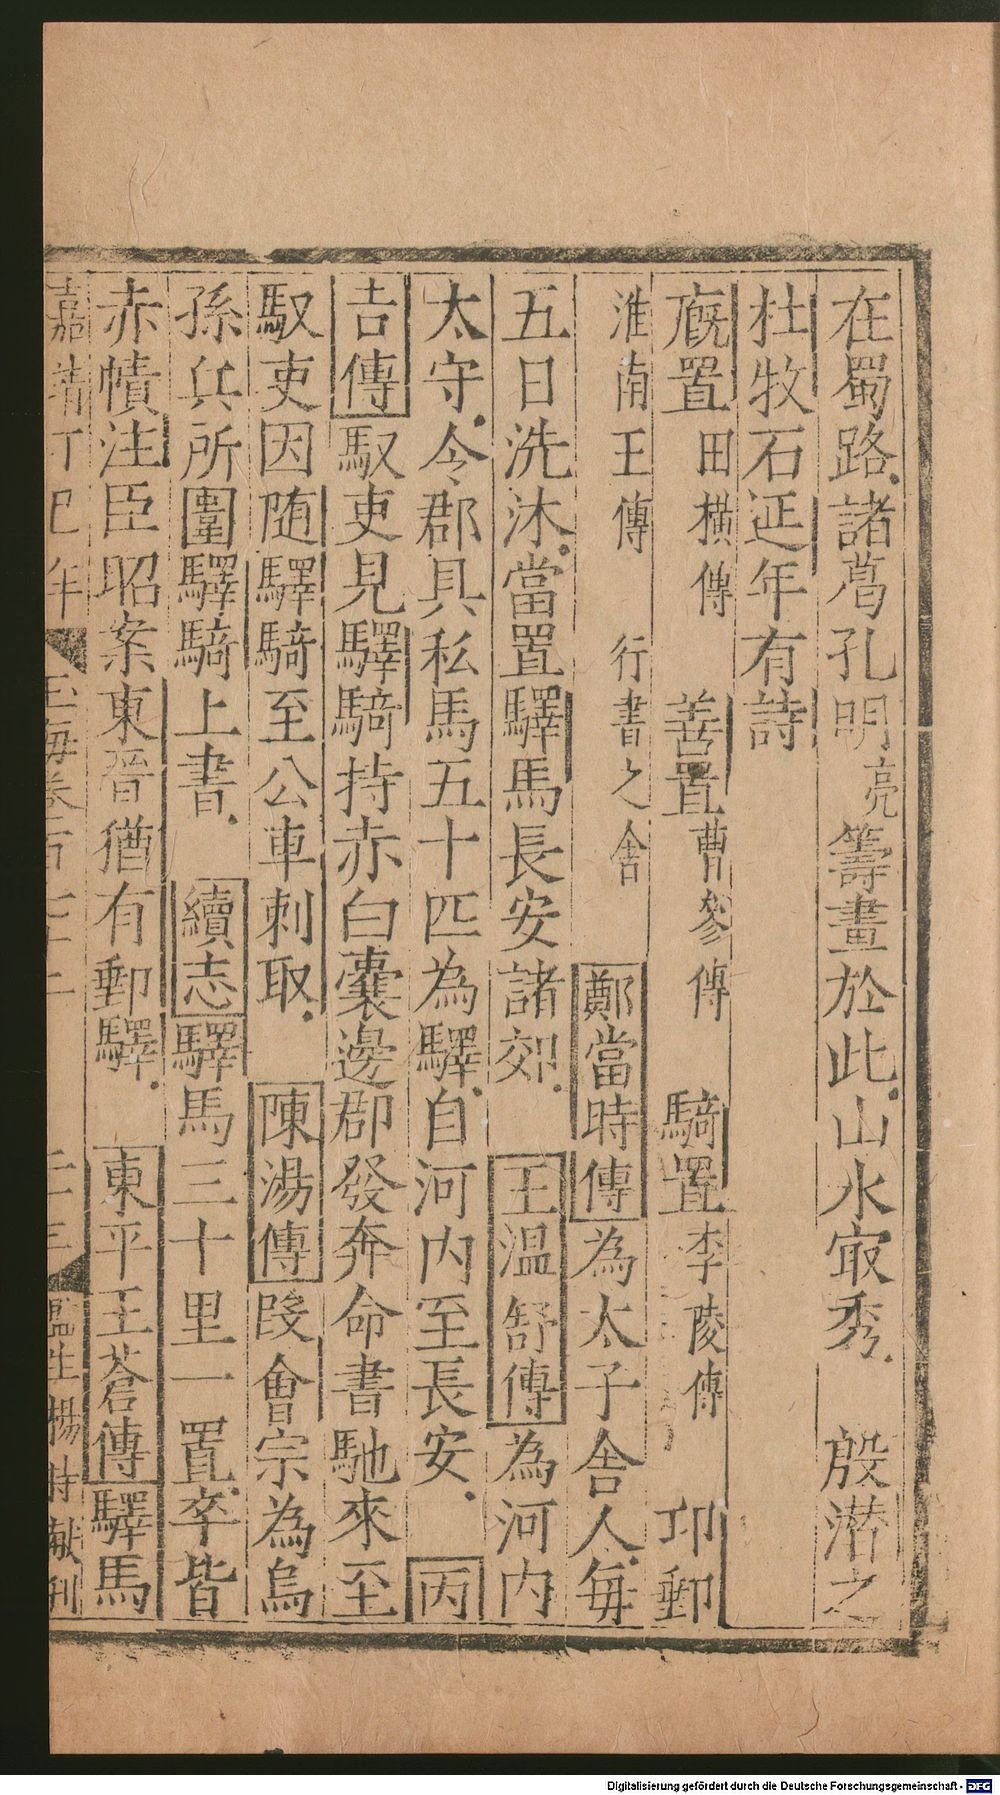 在蜀路諸葛孔明亮籌畫於此山水㝡秀　殷潜之
杜牧石迊年有詩
廐置田橫傳　善置曹參傳　騎置李陵傳　卭郵
淮南王傳　行書之舍　鄭當時傳為太子舍人毎
五日洗沐當置驛馬長安諸郊　王溫舒傳為河内
太守令郡具私馬五十匹為驛自河内至長安　丙
吉傳馭吏見驛騎持赤白囊邊郡發奔命書馳來至
馭吏因随驛騎至公車刺取　陳湯傳叚會宗為烏
孫兵所圍驛騎上書　續志驛馬三十里一置卒皆
赤幘注臣昭案東晉猶有郵驛　東平王蒼傳驛馬
嘉靖丁巳年　玉海卷一百七十二　二十三　監生楊持献刊
Digitalisierung gefördert durch die Deutsche Forschungsgemeinschaft - DFG